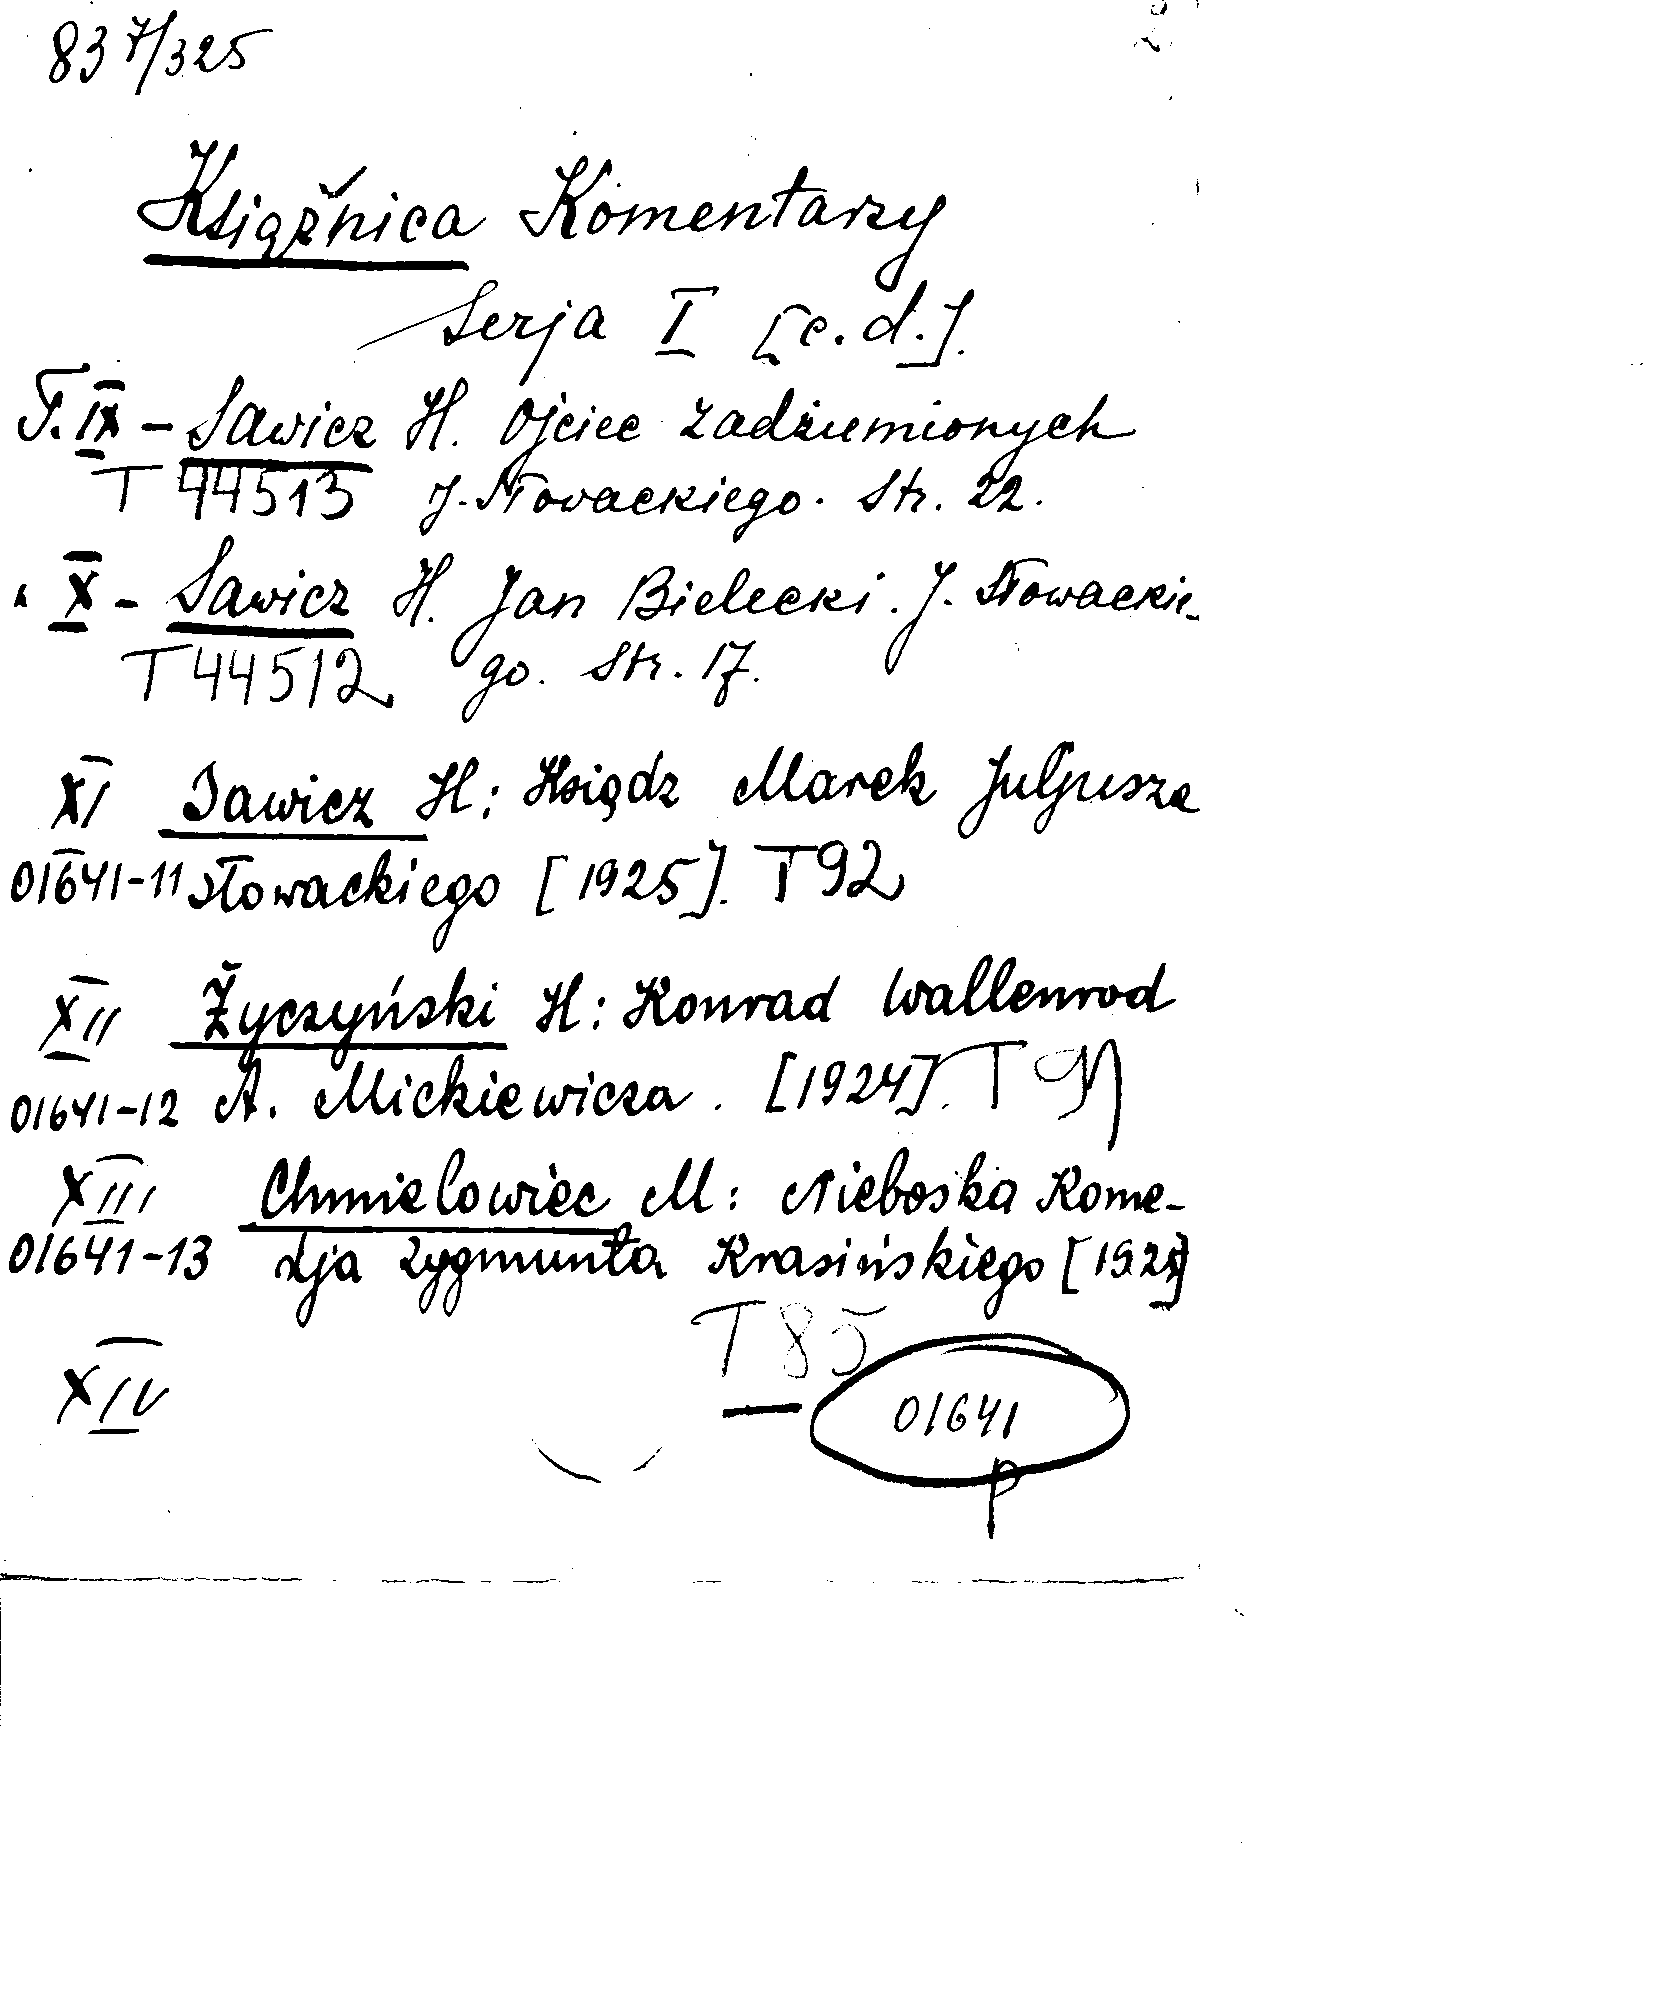 837/325
Książnica Komentarzy
Serja I [c.d.].
T. IX - Sawicz H. Ojciec zadżumionych
T 44513 J. Słowackiego. Str. 22.
" X - Sawicz H. Jan Bielecki. J. Słowackie-
T 44512 go. Str. 17.
XI Sawicz H: Ksiądz Marek Juljusza
01641-11 Słowackiego [1925]. T 92
XII Życzyński H: Konrad Wallenrod
01641-12 A. Mickiewicza. [1924]. T 91
XIII Chmielowiec M: Nieboska Kome-
01641-13 dja Zygmunta Krasińskiego
T 85
XIV
01641
p